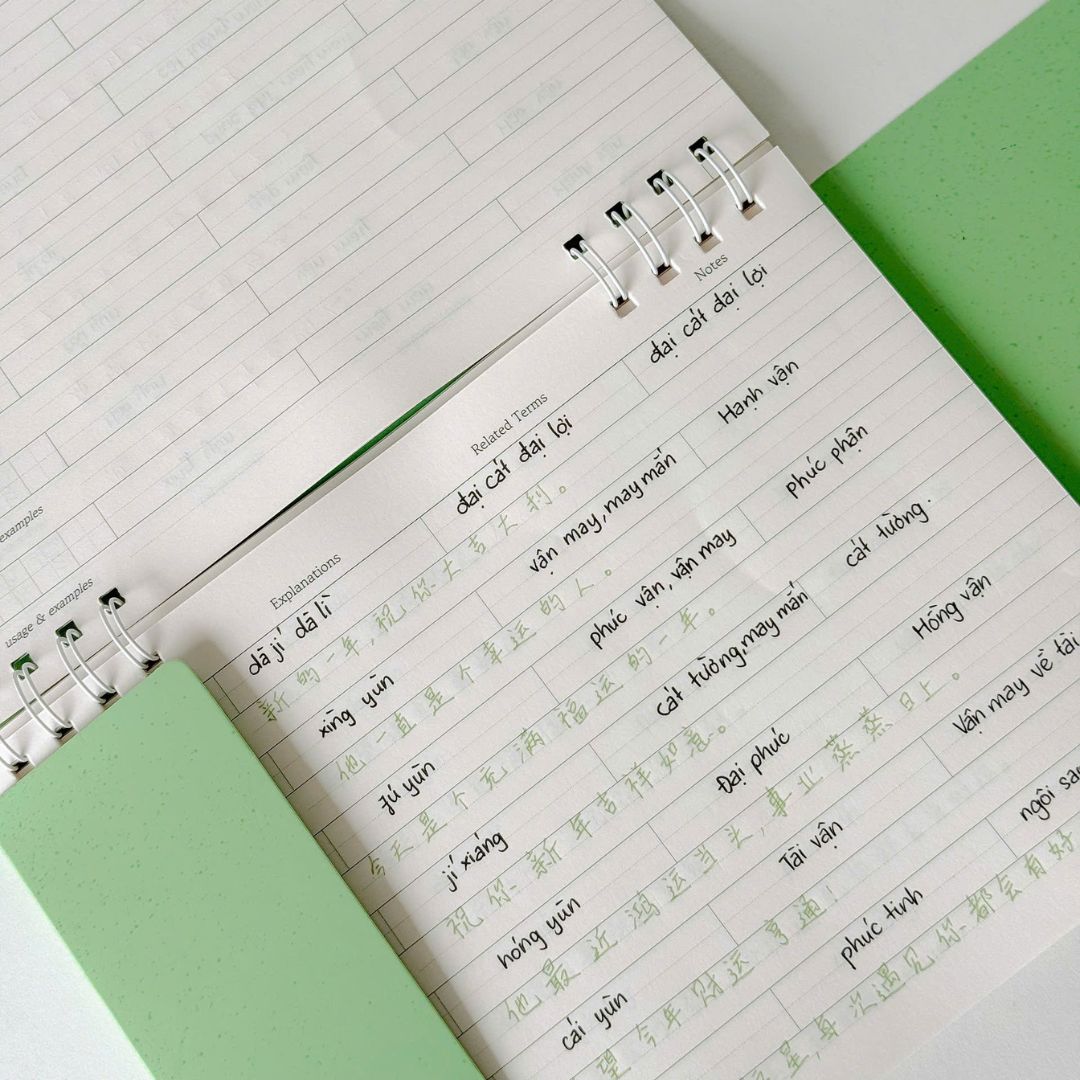 examples
usage & examples
Explanations
Related Terms
Notes
dā jí dā lì
đại cát đại lợi
đại cát đại lợi
新的一年,祝你大吉大利。
xīng yùn
vận may, may mắn
Hạnh vận
他一直是个幸运的人。
Fú yùn
phúc vận, vận may
phúc phận
今天是个充满福运的一年。
jí xiáng
cát tường, may mắn
cát tường.
祝你新年吉祥如意。
hóng yùn
Đại phúc
Hồng vận
他最近鸿运当头,事业蒸蒸日上。
cái yùn
Tài vận
Vận may về tài
望今年财运亨通!
phúc tinh
ngôi sao
星,每次遇见你都会有好